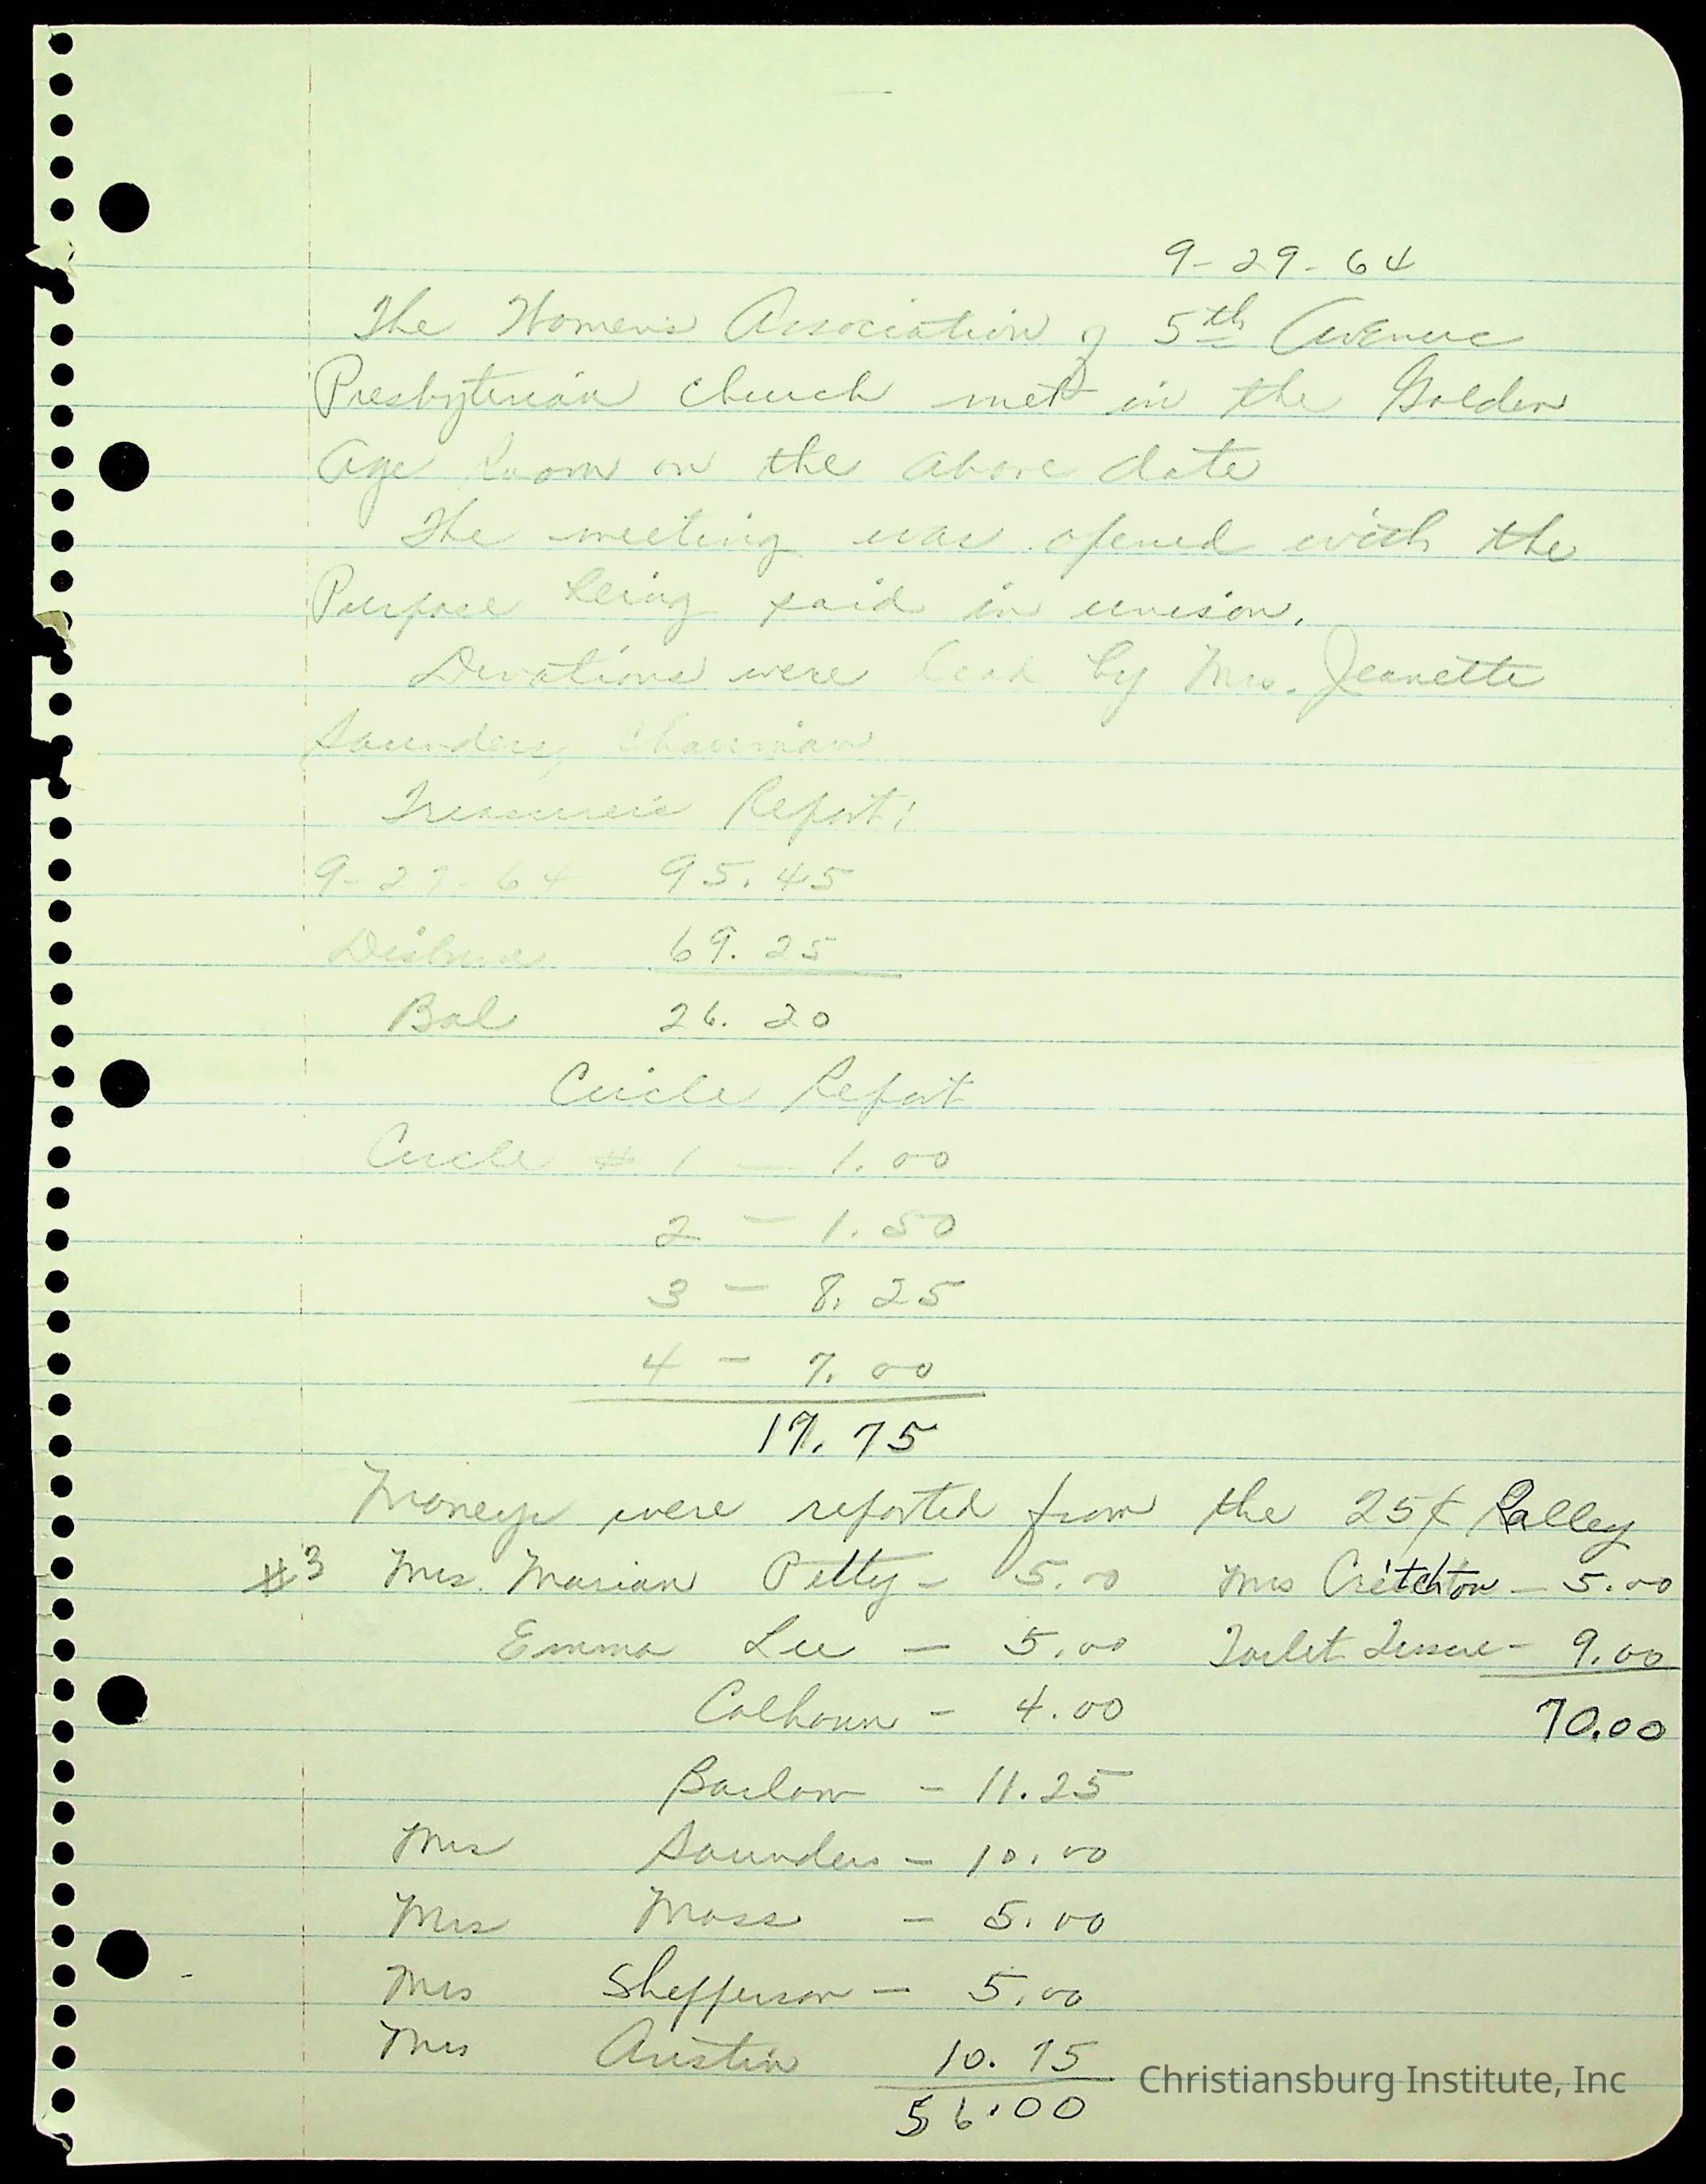 9-29-64
The Women's Association of 5th Avenue
Presbyterian Church met in the Golden
Age Room on the above date
The meeting was opened with the
Purpose being said in unison.
Devotions were lead by Mrs. Jeanette
Saunders, Chairman
Treasurer's Report:
9-29-64 95.45
Disburse 69.25
Bal 26.20
Circle Report
Circle # 1 — 1.00
2 — 1.50
3 — 8.25
4 — 7.00
17.75
Moneys were reported from the 25¢ Ralley
#3 Mrs. Marian Petty - 5.00 Mrs Critchton - 5.00
Emma Lee — 5.00 Toilet Tissue - 9.00
Calhoun - 4.00 70.00
Barlow - 11.25
Mrs Saunders - 10.00
Mrs Moss - 5.00
Mrs Shefferson - 5.00
Mrs Austin 10.75
56.00
Christiansburg Institute, Inc